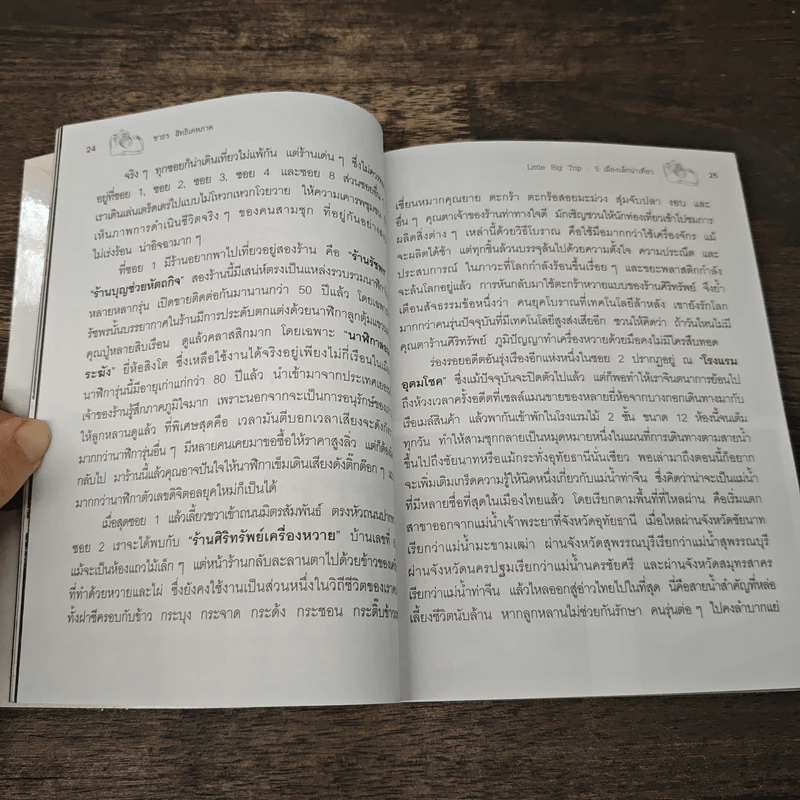 24
ชาธร สิทธิเคหภาค
จริง ๆ ทุกซอยก็น่าเดินเที่ยวไม่แพ้กัน แต่ร้านเด่น ๆ ซึ่งไม่ควรพลาด
อยู่ที่ซอย 1, ซอย 2, ซอย 3, ซอย 4 และซอย 8 ส่วนซอยอื่น
เราเดินเล่นเตร็ดเตร่ไปแบบไม่โหวกเหวกโวยวาย ให้ความเคารพชุมชน
เห็นภาพการดำเนินชีวิตจริง ๆ ของคนสามชุก ที่อยู่กันอย่างสงบ
ไม่เร่งร้อน น่าอิจฉามาก ๆ
ที่ซอย 1 มีร้านอยากพาไปเที่ยวอยู่สองร้าน คือ “ร้านรัชพร”
“ร้านบุญช่วยหัตถกิจ” สองร้านนี้มีเสน่ห์ตรงเป็นแหล่งรวบรวมนาฬิกา
หลายหลากรุ่น เปิดขายติดต่อกันมานานกว่า 50 ปีแล้ว โดยเฉพาะ
รัชพรนั้นบรรยากาศในร้านมีการประดับตกแต่งด้วยนาฬิกาลูกตุ้มแขวน
คุณปู่หลายสิบเรือน ดูแล้วคลาสสิกมาก โดยเฉพาะ “นาฬิกาลอน
ระฆัง” ยี่ห้อสิงโต ซึ่งเหลือใช้งานได้จริงอยู่เพียงไม่กี่เรือนในเมือง
นาฬิการุ่นนี้มีอายุเก่าแก่กว่า 80 ปีแล้ว นำเข้ามาจากประเทศเยอรมัน
เจ้าของร้านรู้สึกภาคภูมิใจมาก เพราะนอกจากจะเป็นการอนุรักษ์ของเก่า
ให้ลูกหลานดูแล้ว ที่พิเศษสุดคือ เวลามันตีบอกเวลาเสียงจะดังกังวาน
มากกว่านาฬิการุ่นอื่น ๆ มีหลายคนเคยมาขอซื้อให้ราคาสูงลิ่ว แต่ก็ต้อง
กลับไป มาร้านนี้แล้วคุณอาจปันใจให้นาฬิกาเข็มเดินเสียงดังติ๊กต็อก ๆ
มากกว่านาฬิกาตัวเลขดิจิตอลยุคใหม่ก็เป็นได้
เมื่อสุดซอย 1 แล้วเลี้ยวขวาเข้าถนนมิตรสัมพันธ์ ตรงหัวถนนปาก
ซอย 2 เราจะได้พบกับ “ร้านศิริทรัพย์เครื่องหวาย” บ้านเลขที่
แม้จะเป็นห้องแถวไม้เล็ก ๆ แต่หน้าร้านกลับละลานตาไปด้วยข้าวของ
ที่ทำด้วยหวายและไผ่ ซึ่งยังคงใช้งานเป็นส่วนหนึ่งในวิถีชีวิตของเรา
ทั้งฝาชีครอบกับข้าว กระบุง กระจาด กระด้ง กระซอน กระติ๊บข้าว
Little Big Trip : 5 เมืองเล็กน่าเที่ยว
25
เชี่ยนหมากคุณยาย ตะกร้า ตะกร้อสอยมะม่วง สุ่มจับปลา งอบ และ
อื่น ๆ คุณตาเจ้าของร้านท่าทางใจดี มักเชิญชวนให้นักท่องเที่ยวเข้าไปชมการ
ผลิตสิ่งต่าง ๆ เหล่านี้ด้วยวิธีโบราณ คือใช้มือมากกว่าใช้เครื่องจักร แม้
จะผลิตได้ช้า แต่ทุกชิ้นล้วนบรรจุล้นไปด้วยความตั้งใจ ความประณีต และ
ประสบการณ์ ในภาวะที่โลกกำลังร้อนขึ้นเรื่อย ๆ และขยะพลาสติกกำลัง
จะล้นโลกอยู่แล้ว การหันกลับมาใช้ตะกร้าหวายแบบของร้านศิริทรัพย์ จึงย้ำ
เตือนสัจธรรมข้อหนึ่งว่า คนยุคโบราณที่เทคโนโลยีล้าหลัง เขายังรักโลก
มากกว่าคนรุ่นปัจจุบันที่มีเทคโนโลยีสูงส่งเสียอีก ชวนให้คิดว่า ถ้าวันไหนไม่มี
คุณตาร้านศิริทรัพย์ ภูมิปัญญาทำเครื่องหวายด้วยมือคงไม่มีใครสืบทอด
ร่องรอยอดีตอันรุ่งเรืองอีกแห่งหนึ่งในซอย 2 ปรากฏอยู่ ณ “โรงแรม
อุดมโชค” ซึ่งแม้ปัจจุบันจะปิดตัวไปแล้ว แต่ก็พอทำให้เราจินตนาการย้อนไป
ถึงห้วงเวลาครั้งอดีตที่เซลส์แมนขายของหลายยี่ห้อจากบางกอกเดินทางมากับ
เรือเมล์สินค้า แล้วพากันเข้าพักในโรงแรมไม้ 2 ชั้น ขนาด 12 ห้องนี้จนเต็ม
ทุกวัน ทำให้สามชุกกลายเป็นหมุดหมายหนึ่งในแผนที่การเดินทางตามสายน้ำ
ขึ้นไปถึงชัยนาทหรือแม้กระทั่งอุทัยธานีนั่นเชียว พอเล่ามาถึงตอนนี้ก็อยาก
จะเพิ่มเติมเกร็ดความรู้ให้นิดหนึ่งเกี่ยวกับแม่น้ำท่าจีน ซึ่งคิดว่าน่าจะเป็นแม่น้ำ
ที่มีหลายชื่อที่สุดในเมืองไทยแล้ว โดยเรียกตามพื้นที่ที่ไหลผ่าน คือเริ่มแตก
สาขาออกจากแม่น้ำเจ้าพระยาที่จังหวัดอุทัยธานี เมื่อไหลผ่านจังหวัดชัยนาท
เรียกว่าแม่น้ำมะขามเฒ่า ผ่านจังหวัดสุพรรณบุรีเรียกว่าแม่น้ำสุพรรณบุรี
ผ่านจังหวัดนครปฐมเรียกว่าแม่น้ำนครชัยศรี และผ่านจังหวัดสมุทรสาคร
เรียกว่าแม่น้ำท่าจีน แล้วไหลออกสู่อ่าวไทยไปในที่สุด นี่คือสายน้ำสำคัญที่หล่อ
เลี้ยงชีวิตนับล้าน หากลูกหลานไม่ช่วยกันรักษา คนรุ่นต่อ ๆ ไปคงลำบากแย่